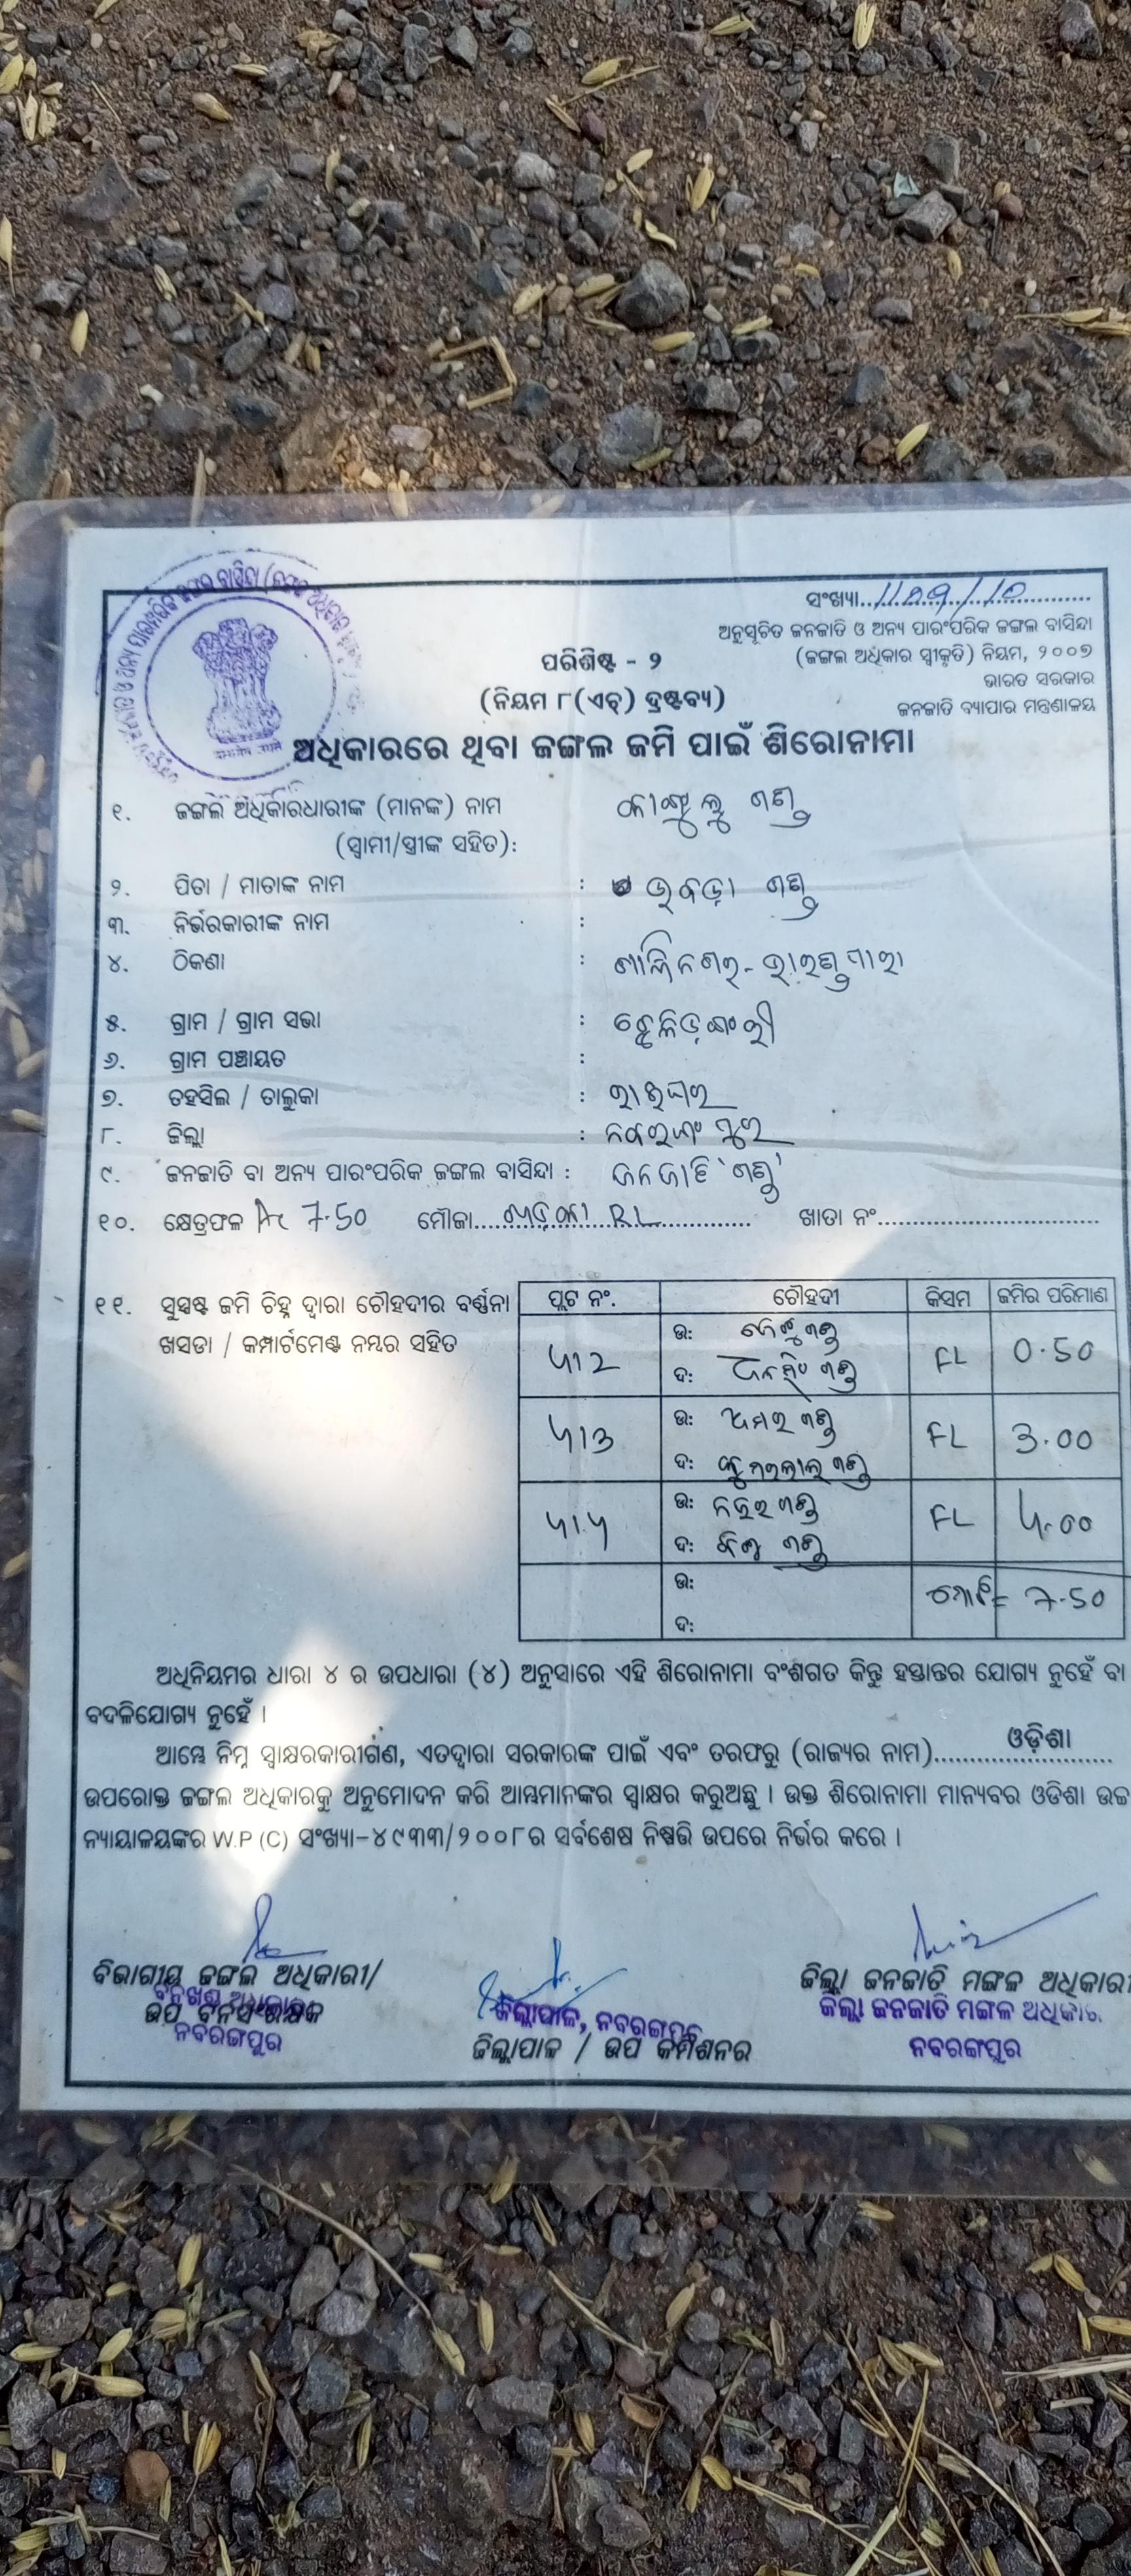 ସଂଖ୍ୟା...1109/10
ଅନୁସୂଚିତ ଜନଜାତି ଓ ଅନ୍ୟ ପାରଂପରିକ ଜଙ୍ଗଲ ବାସିନ୍ଦା
(ଜଙ୍ଗଲ ଅଧିକାର ସ୍ୱୀକୃତି) ନିୟମ, ୨୦୦୭
ଭାରତ ସରକାର
ଜନଜାତି ବ୍ୟାପାର ମନ୍ତ୍ରଣାଳୟ
ପରିଶିଷ୍ଟ - ୨
(ନିୟମ ୮(ଏଚ୍) ଦ୍ରଷ୍ଟବ୍ୟ)
ଅଧିକାରରେ ଥିବା ଜଙ୍ଗଲ ଜମି ପାଇଁ ଶିରୋନାମା
୧. ଜଙ୍ଗଲ ଅଧିକାରଧାରୀଙ୍କ (ମାନଙ୍କ) ନାମ ଗଣ୍ଡ
(ସ୍ୱାମୀ/ସ୍ତ୍ରୀଙ୍କ ସହିତ):
୨. ପିତା / ମାତାଙ୍କ ନାମ : ଗଣ୍ଡ
୩. ନିର୍ଭରକାରୀଙ୍କ ନାମ :
୪. ଠିକଣା :
୫. ଗ୍ରାମ / ଗ୍ରାମ ସଭା :
୬. ଗ୍ରାମ ପଞ୍ଚାୟତ :
୭. ତହସିଲ / ତାଲୁକା : ରାଇଘର
୮. ଜିଲ୍ଲା : ନବରଙ୍ଗପୁର
୯. ଜନଜାତି ବା ଅନ୍ୟ ପାରଂପରିକ ଜଙ୍ଗଲ ବାସିନ୍ଦା : ଜନଜାତି 'ଗଣ୍ଡ'
୧୦. କ୍ଷେତ୍ରଫଳ Ac 7.50 ମୌଜା...... RL............ ଖାତା ନଂ..............................
୧୧. ସୁସ୍ପଷ୍ଟ ଜମି ଚିହ୍ନ ଦ୍ୱାରା ଚୌହଦୀର ବର୍ଣ୍ଣନା
ଖସଡା / କମ୍ପାର୍ଟମେଣ୍ଟ ନମ୍ବର ସହିତ
ପ୍ଲଟ ନଂ. ଚୌହଦୀ କିସମ ଜମିର ପରିମାଣ
ଉ: ଗଣ୍ଡ
ଦ: ଗଣ୍ଡ FL 0.50
ଉ: ଅମର ଗଣ୍ଡ
ଦ: ଗଣ୍ଡ FL 3.00
ଉ: ଗଣ୍ଡ
ଦ: ଗଣ୍ଡ FL 4.00
ଉ:
ଦ:
ମୋଟ = 7.50
ଅଧିନିୟମର ଧାରା ୪ ର ଉପଧାରା (୪) ଅନୁସାରେ ଏହି ଶିରୋନାମା ବଂଶଗତ କିନ୍ତୁ ହସ୍ତାନ୍ତର ଯୋଗ୍ୟ ନୁହେଁ ବା
ବଦଳିଯୋଗ୍ୟ ନୁହେଁ ।
ଆମ୍ଭେ ନିମ୍ନ ସ୍ୱାକ୍ଷରକାରୀଗଣ, ଏତଦ୍ୱାରା ସରକାରଙ୍କ ପାଇଁ ଏବଂ ତରଫରୁ (ରାଜ୍ୟର ନାମ)......ଓଡ଼ିଶା......
ଉପରୋକ୍ତ ଜଙ୍ଗଲ ଅଧିକାରକୁ ଅନୁମୋଦନ କରି ଆମ୍ଭମାନଙ୍କର ସ୍ୱାକ୍ଷର କରୁଅଛୁ । ଉକ୍ତ ଶିରୋନାମା ମାନ୍ୟବର ଓଡିଶା ଉଚ୍ଚ
ନ୍ୟାୟାଳୟଙ୍କର W.P (C) ସଂଖ୍ୟା-୪୯୩୩/୨୦୦୮ର ସର୍ବଶେଷ ନିଷ୍ପତ୍ତି ଉପରେ ନିର୍ଭର କରେ ।
ବିଭାଗୀୟ ଜଙ୍ଗଲ ଅଧିକାରୀ/
ବନଖଣ୍ଡ ଅଧିକାରୀ
ଉପ ବନସଂରକ୍ଷକ
ନବରଙ୍ଗପୁର
ଜିଲ୍ଲାପାଳ, ନବରଙ୍ଗପୁର
ଜିଲ୍ଲାପାଳ / ଉପ କମିଶନର
ଜିଲ୍ଲା ଜନଜାତି ମଙ୍ଗଳ ଅଧିକାରୀ
ଜିଲ୍ଲା ଜନଜାତି ମଙ୍ଗଳ ଅଧିକାରୀ
ନବରଙ୍ଗପୁର